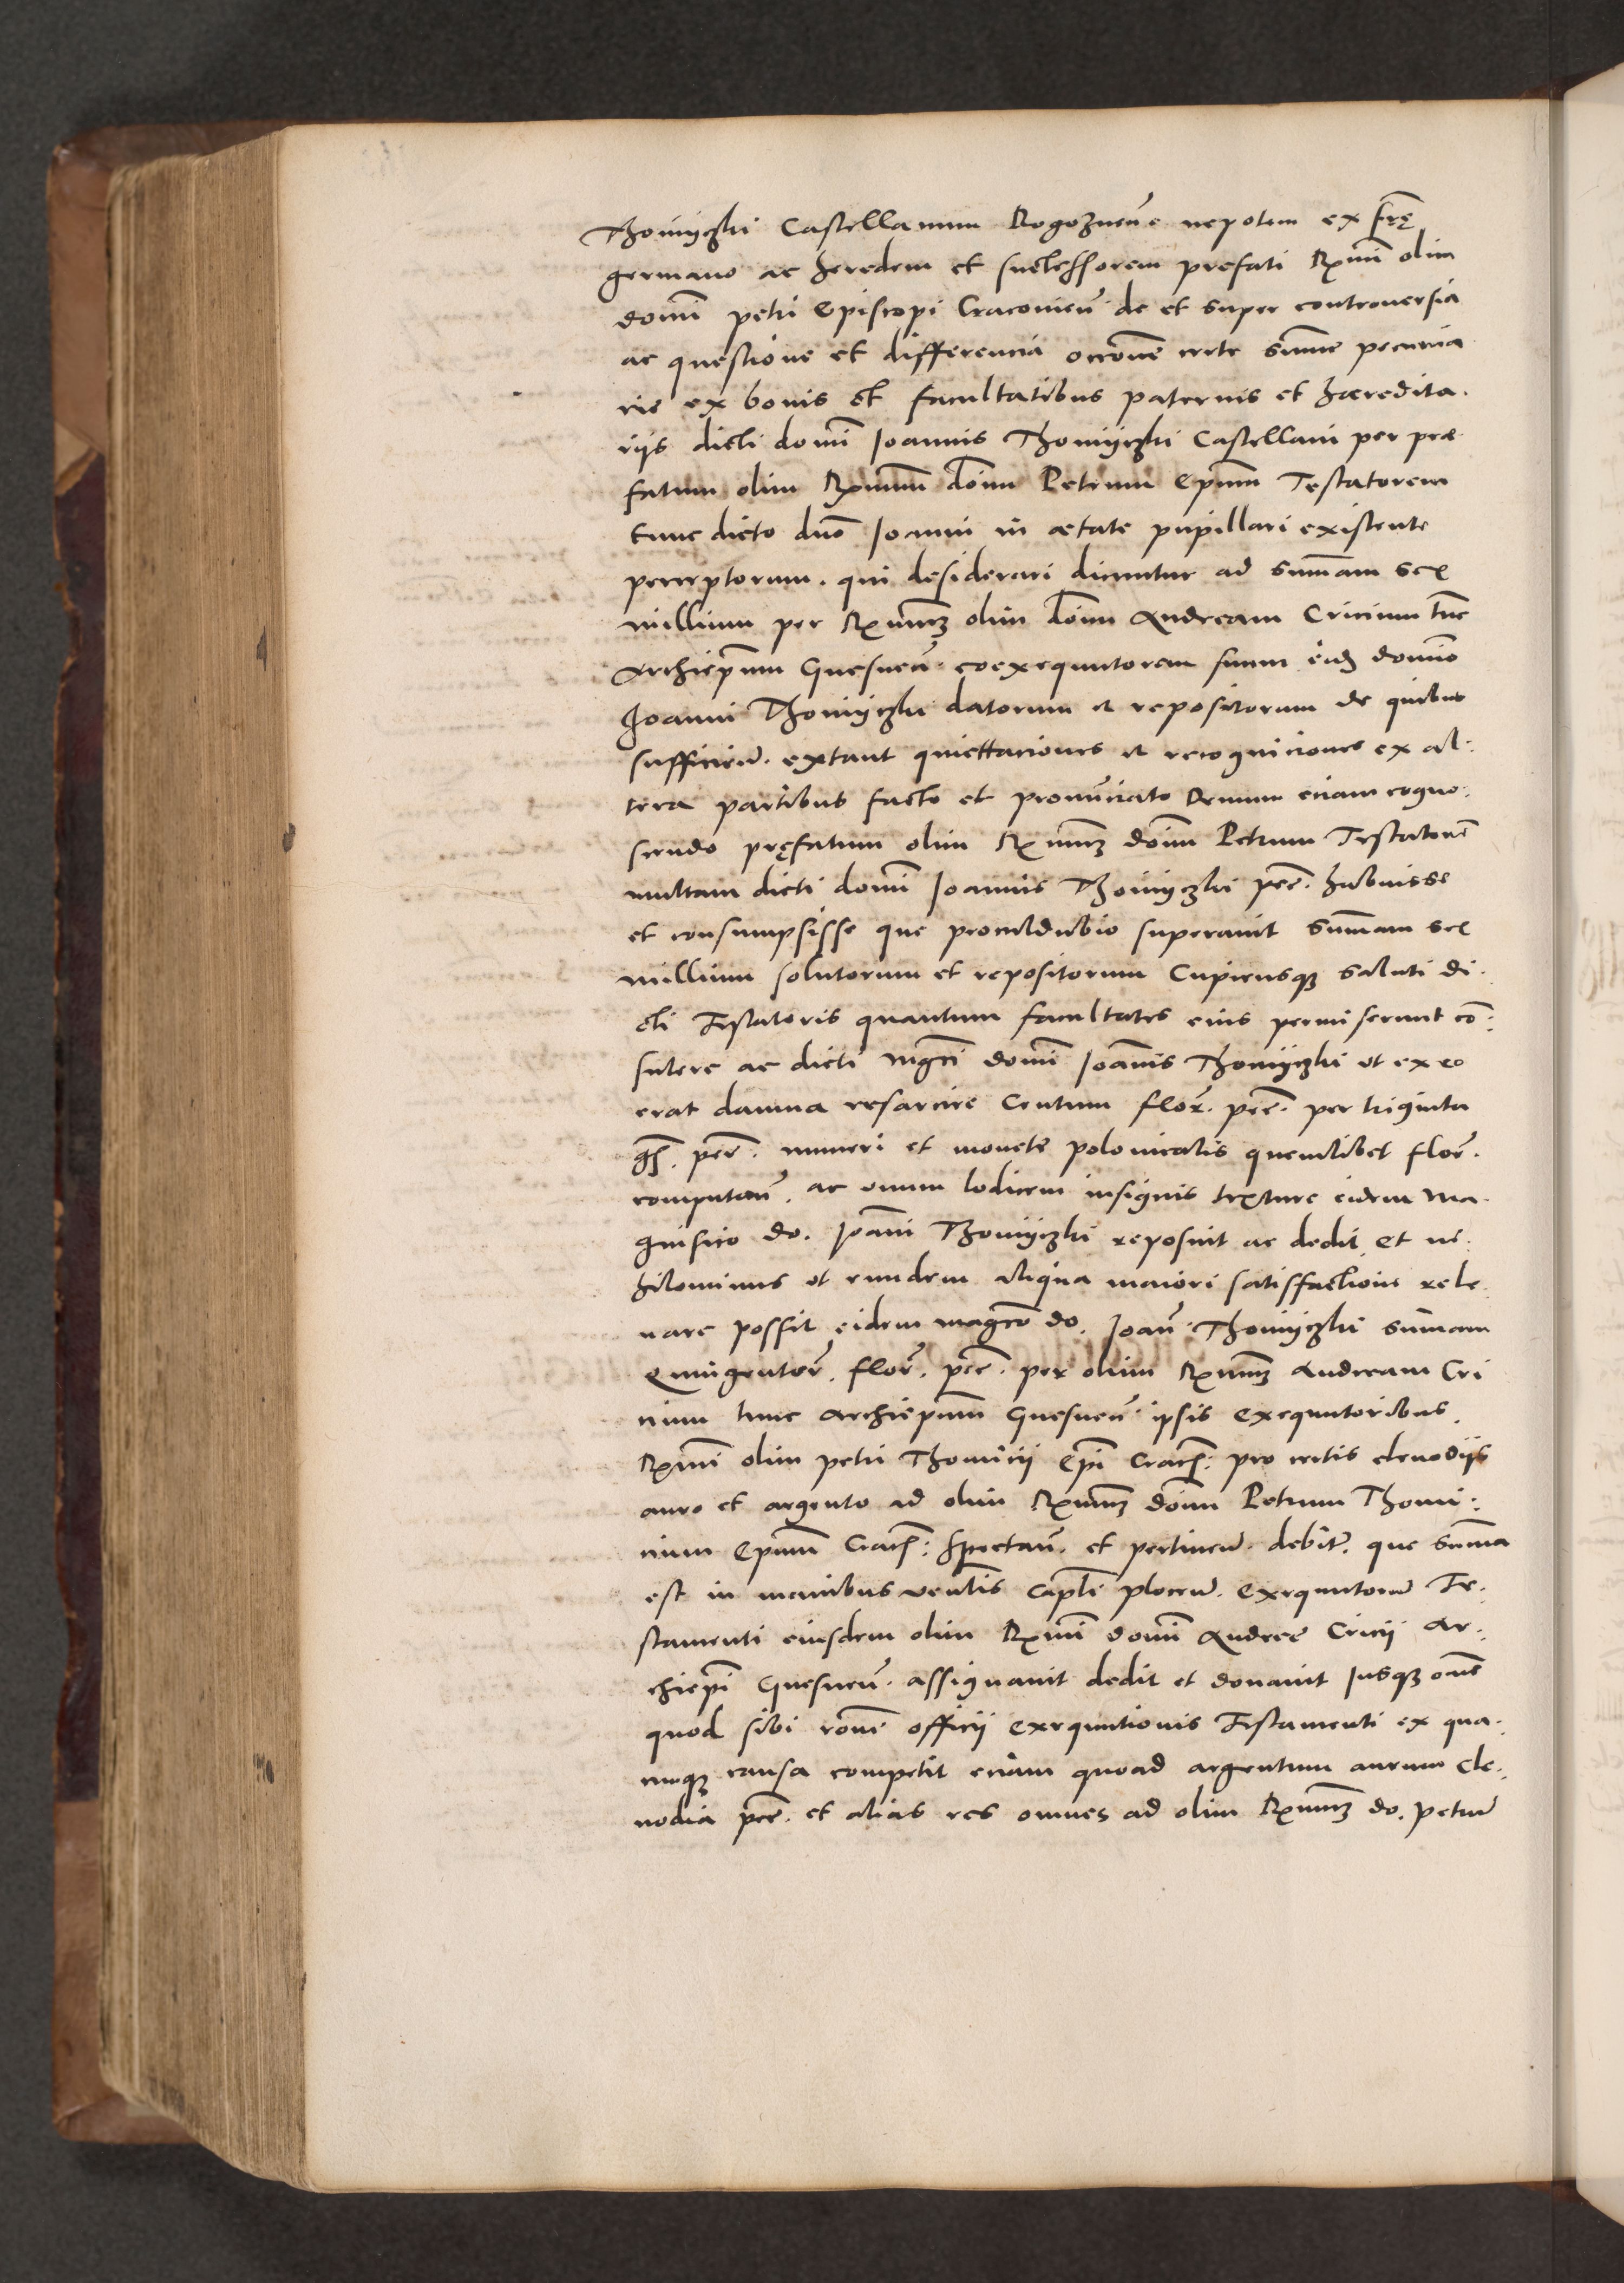 Thomiyczki Castellanum Rogoznenẽ nepotem ex frẽ
germano ac heredem et successorem prefati Rxmi olim
domi petri Episcopi Cracouieñ de et super controuersia
ac questione et differencia occoñe certe summe pecunia
rie ex bonis et facultatibus paternis et haeredita.
rijs dicti domi Joannis Thomiyczki Castellani per prae
fatum olim Rxmum dom̃ Petrum Epum Testatorem
tunc dicto dno Joanni in aetate pupillari existente
perceptorum. qui desiderari dicuntur ad summam sex
millium per Rxmum olim dom̃ Andream Cricium tnc
Archiepum Gnesneñ coexequutorem suum eid domino
Joanni Thomiyczki datorum et repositorum de quibus
sufficieñ. extant quiettaciones et recogniciones ex al:
tera partibus facto et pronunciato Demum eciam cogno:
scendo prefatum olim Rxmum dom̃ Petrum Testatorẽ
multam dicti domi Joannis Thomiyczki pec̃. habuisse
et consumpsisse que proculdubio superauit summam sex
millium solutorum et repositorum Cupiensq3 saluti di.
cti Testatoris quantum facultates eius permiserunt cõ:
sulere ac dicti mgci domi Joañis Thomiyczki ut ex eo
erat damna resarcire Centum flor̃. pec̃. per triginta
gs. pec̃. numeri et monete polonicalis quemlibet flor̃.
computañ. ac unum lodicem insignis texture eidem Ma.
gnifico do. Joañi Thomiyczki reposuit ac dedit et ni.
hilominus ut eundem aliqua maiori satisfactione rele.
uare possit eidem magco do. Joañ. Thomiyczki summam
Quingentor̃. flor̃. pec̃. per olim Rxmum Andream Cri
cium tunc Archiepum Gnesneñ ipsis Exequutoribus
Rxmi olim petri Thomicii Epi Cracs: pro certis clenodijs
auro et argento ad olim Rxmum dom̃ Petrum Thomi:
cium Epum Cracs: spectañ. et pertineñ. debit̃. que summa
est in manibus ventlis Caplti ploceñ. Exequutorum Te.
stamenti eiusdem olim Rxmi domi Andree Cricii Ar.
chiepi Gnesneñ. assignauit dedit et donauit Jusq3 om̃e
quod sibi rone officii Exequutionis Testamenti ex qua.
cunq3 causa competit eciam quoad argentum aurum Cle.
nodia pec̃. et alias res omnes ad olim Rxmum do. petrum